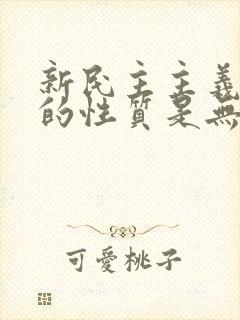 新民主主義
的性質是無
可愛桃子